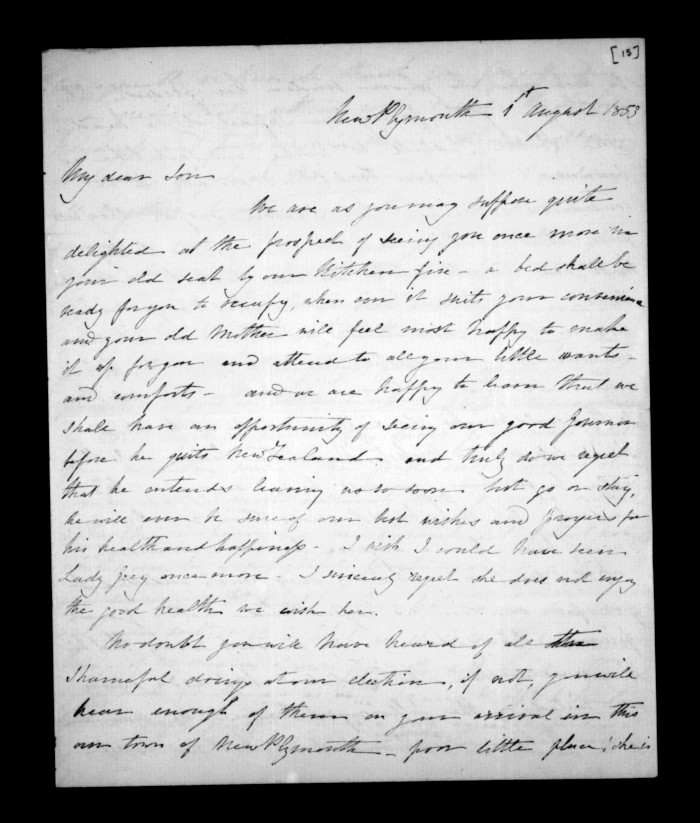 [15]
New Plymouth 1st August 1853
My dear Son
We are as you may suppose quite
delighted at the prospect of seeing you once more in
your old seat by our Kitchen fire - a bed shall be
ready for you to occupy, when ever it suits your convenience
and your old Mother will feel most happy to make
it up for you and attend to all your little wants -
and comforts - and we are happy to learn that we
shall have an opportunity of seeing our good Governor
before he quits New Zealand, and truly do we regret
that he intends leaving us so soon but go or stay,
he will ever be sure of our best wishes and prayers for
his health and happiness - I wish I could have seen
Lady Grey once more - I sincerely regret she does not enjoy
the good health we wish her.
No doubt you will have heard of all the
shameful doings at our election, if not, you will
hear enough of them on your arrival in this
our town of New Plymouth - poor little place! she is